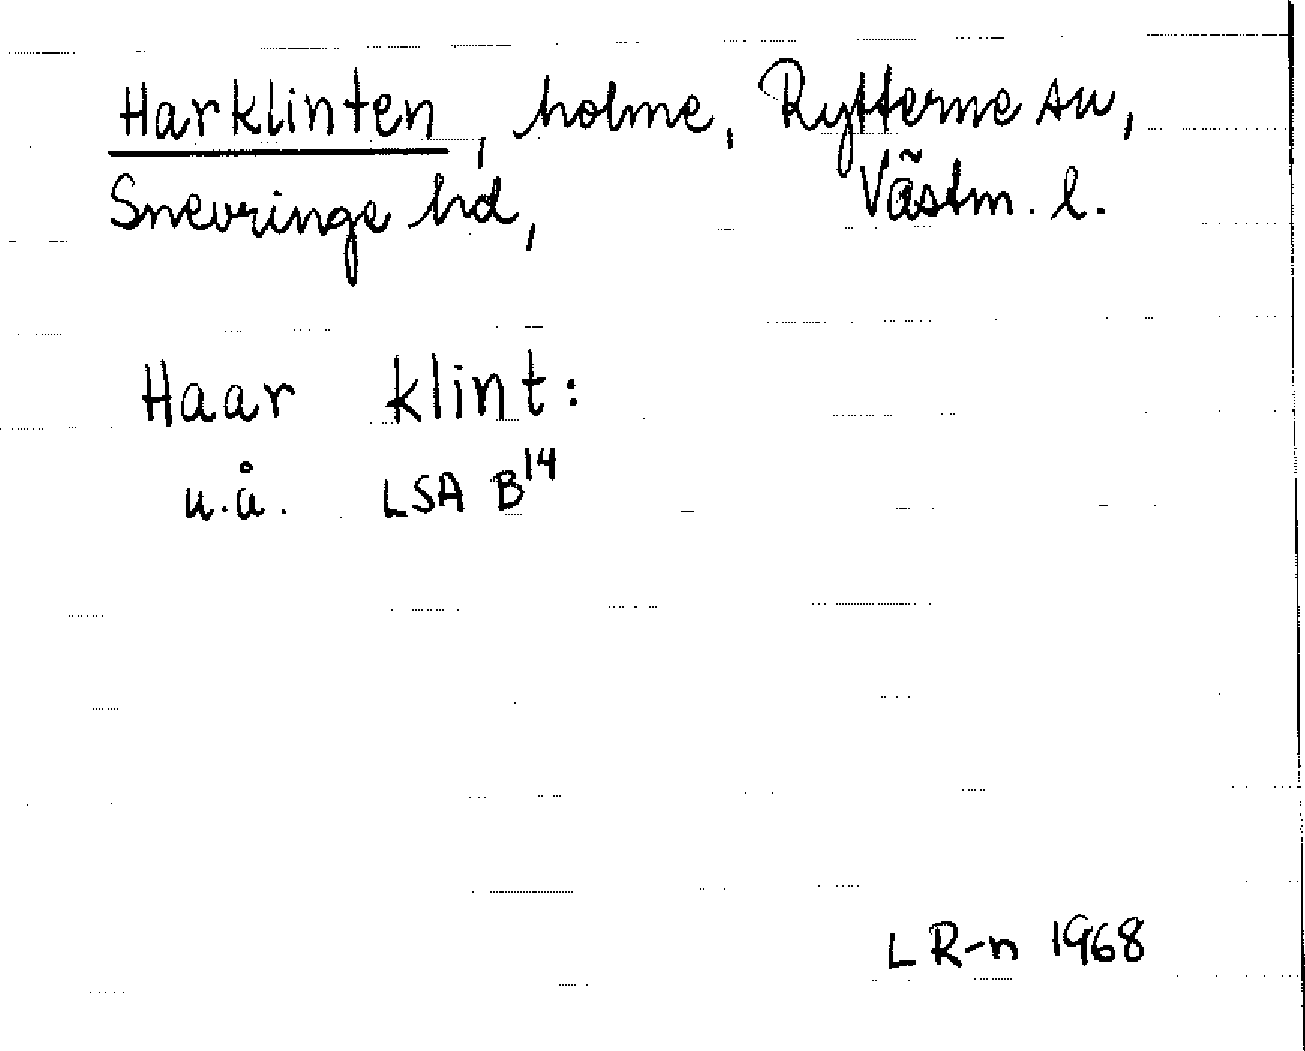 Harklinten, holme, Rytterne sn,
Snevringe hd, Västm. l.
Haar klint:
u.å. LSA B¹⁴
LR-n 1968